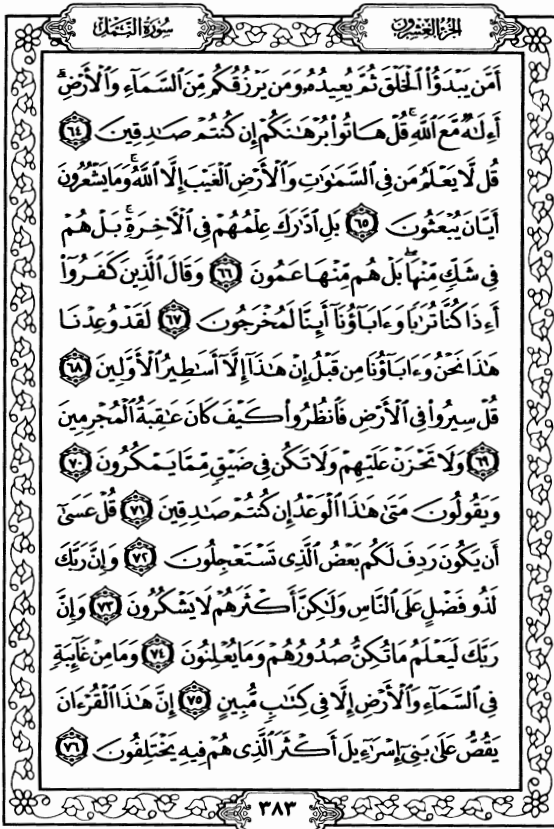 سُورَةُ النَّمْلِ
الجُزْءُ العِشْرُونَ
أَمَّن يَبْدَؤُا۟ ٱلْخَلْقَ ثُمَّ يُعِيدُهُۥ وَمَن يَرْزُقُكُم مِّنَ ٱلسَّمَآءِ وَٱلْأَرْضِ ۗ
أَءِلَٰهٌ مَّعَ ٱللَّهِ ۚ قُلْ هَاتُوا۟ بُرْهَٰنَكُمْ إِن كُنتُمْ صَٰدِقِينَ ٦٤
قُل لَّا يَعْلَمُ مَن فِى ٱلسَّمَٰوَٰتِ وَٱلْأَرْضِ ٱلْغَيْبَ إِلَّا ٱللَّهُ ۚ وَمَا يَشْعُرُونَ
أَيَّانَ يُبْعَثُونَ ٦٥ بَلِ ٱدَّٰرَكَ عِلْمُهُمْ فِى ٱلْـَٔاخِرَةِ ۚ بَلْ هُمْ
فِى شَكٍّ مِّنْهَا ۖ بَلْ هُم مِّنْهَا عَمُونَ ٦٦ وَقَالَ ٱلَّذِينَ كَفَرُوٓا۟
أَءِذَا كُنَّا تُرَٰبًا وَءَابَآؤُنَآ أَئِنَّا لَمُخْرَجُونَ ٦٧ لَقَدْ وُعِدْنَا
هَٰذَا نَحْنُ وَءَابَآؤُنَا مِن قَبْلُ إِنْ هَٰذَآ إِلَّآ أَسَٰطِيرُ ٱلْأَوَّلِينَ ٦٨
قُلْ سِيرُوا۟ فِى ٱلْأَرْضِ فَٱنظُرُوا۟ كَيْفَ كَانَ عَٰقِبَةُ ٱلْمُجْرِمِينَ
٦٩ وَلَا تَحْزَنْ عَلَيْهِمْ وَلَا تَكُن فِى ضَيْقٍ مِّمَّا يَمْكُرُونَ ٧٠
وَيَقُولُونَ مَتَىٰ هَٰذَا ٱلْوَعْدُ إِن كُنتُمْ صَٰدِقِينَ ٧١ قُلْ عَسَىٰٓ
أَن يَكُونَ رَدِفَ لَكُم بَعْضُ ٱلَّذِى تَسْتَعْجِلُونَ ٧٢ وَإِنَّ رَبَّكَ
لَذُو فَضْلٍ عَلَى ٱلنَّاسِ وَلَٰكِنَّ أَكْثَرَهُمْ لَا يَشْكُرُونَ ٧٣ وَإِنَّ
رَبَّكَ لَيَعْلَمُ مَا تُكِنُّ صُدُورُهُمْ وَمَا يُعْلِنُونَ ٧٤ وَمَا مِنْ غَآئِبَةٍ
فِى ٱلسَّمَآءِ وَٱلْأَرْضِ إِلَّا فِى كِتَٰبٍ مُّبِينٍ ٧٥ إِنَّ هَٰذَا ٱلْقُرْءَانَ
يَقُصُّ عَلَىٰ بَنِىٓ إِسْرَٰٓءِيلَ أَكْثَرَ ٱلَّذِى هُمْ فِيهِ يَخْتَلِفُونَ ٧٦
٣٨٣